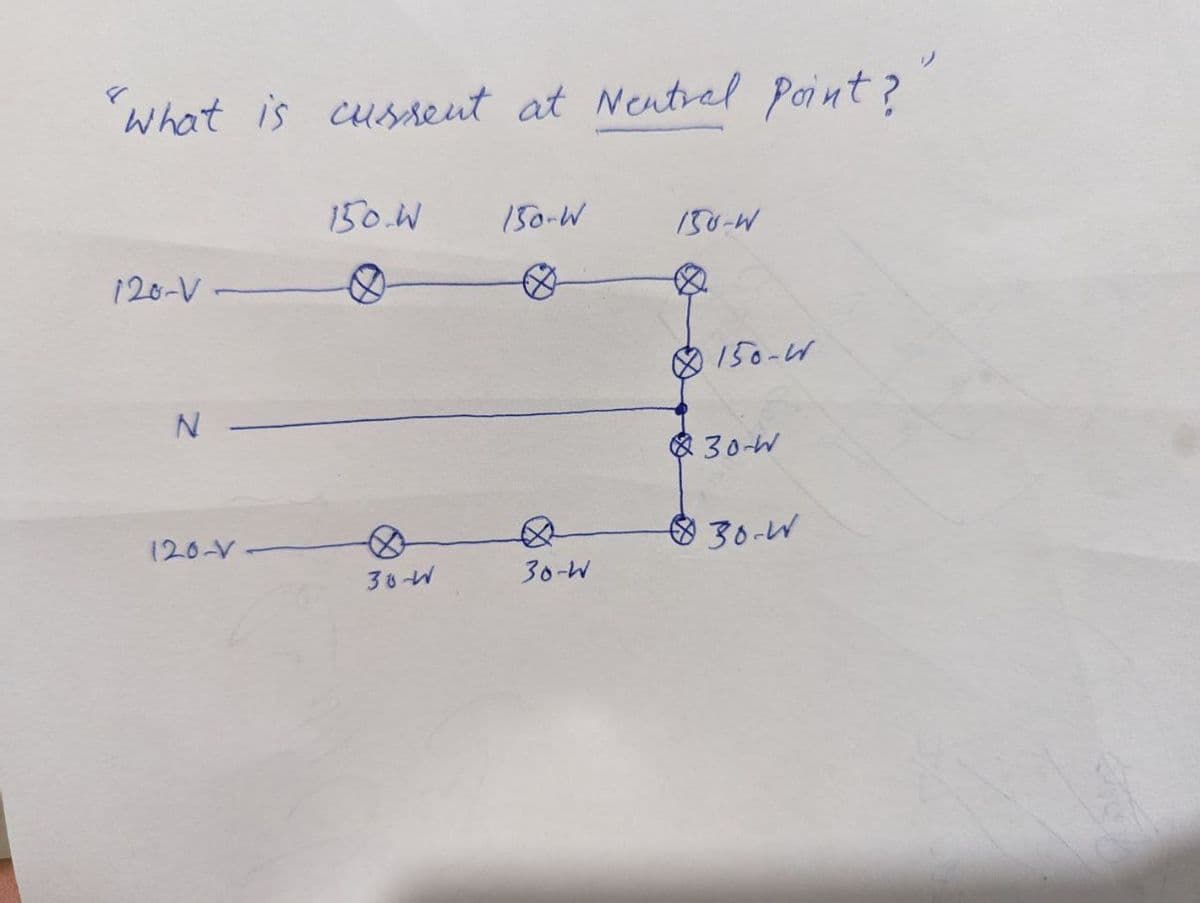 "What is current at Neutral Point?"
150-W 150-W 150-W
120-V
150-W
N
30-W
120-V
30-W
30-W 30-W